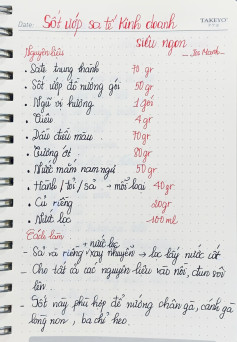 Date:
TAKEYO
Sốt ướp sa tế Kinh doanh
siêu ngon
Nguyên liệu
• Sate trung thành 70 gr
• Sốt ướp đồ nướng gói 50 gr
• Ngũ vị hương 1 gói
• Tiêu 4 gr
• Dầu điều màu 70 gr
• Tương ớt 80 gr
• Nước mắm nam ngư 50 gr
• Hành / tỏi / sả → mỗi loại 40 gr
• Củ riềng 20gr
• Nước lọc 100 ml
Cách làm:
+ nước lọc
- Sả và riềng xay nhuyễn → lọc lấy nước cốt
- Cho tất cả các nguyên liệu vào nồi, đun sôi
lên
- Sốt này phù hợp để nướng chân gà, cánh gà
lòng non, ba chỉ heo.